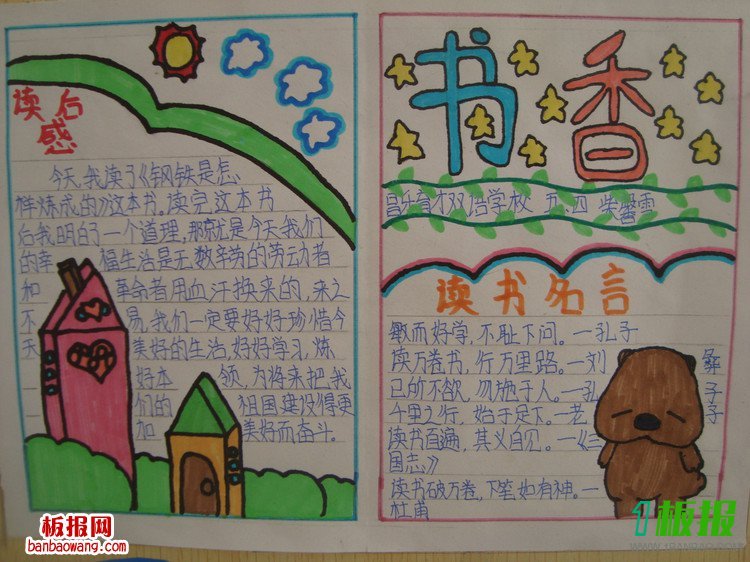 读后
感
今天,我读了《钢铁是怎
样炼成的》这本书。读完这本书
后我明白了一个道理,那就是今天我们
的幸福生活是无数辛劳的劳动者
和革命者用血汗换来的,来之
不易,我们一定要好好珍惜今
天美好的生活,好好学习,炼
好本领,为将来把我
们的祖国建设得更
加美好而奋斗。
板报网
banbaowang.com
书香
昌乐育才双语学校 五.四 柴馨雪
读书名言
敏而好学,不耻下问。—孔子
读万卷书,行万里路。—刘彝
己所不欲,勿施于人。—孔子
千里之行,始于足下。—老子
读书百遍,其义自见。—《三
国志》
读书破万卷,下笔如有神。—
杜甫
1板报
WWW.1BANBAO.COM